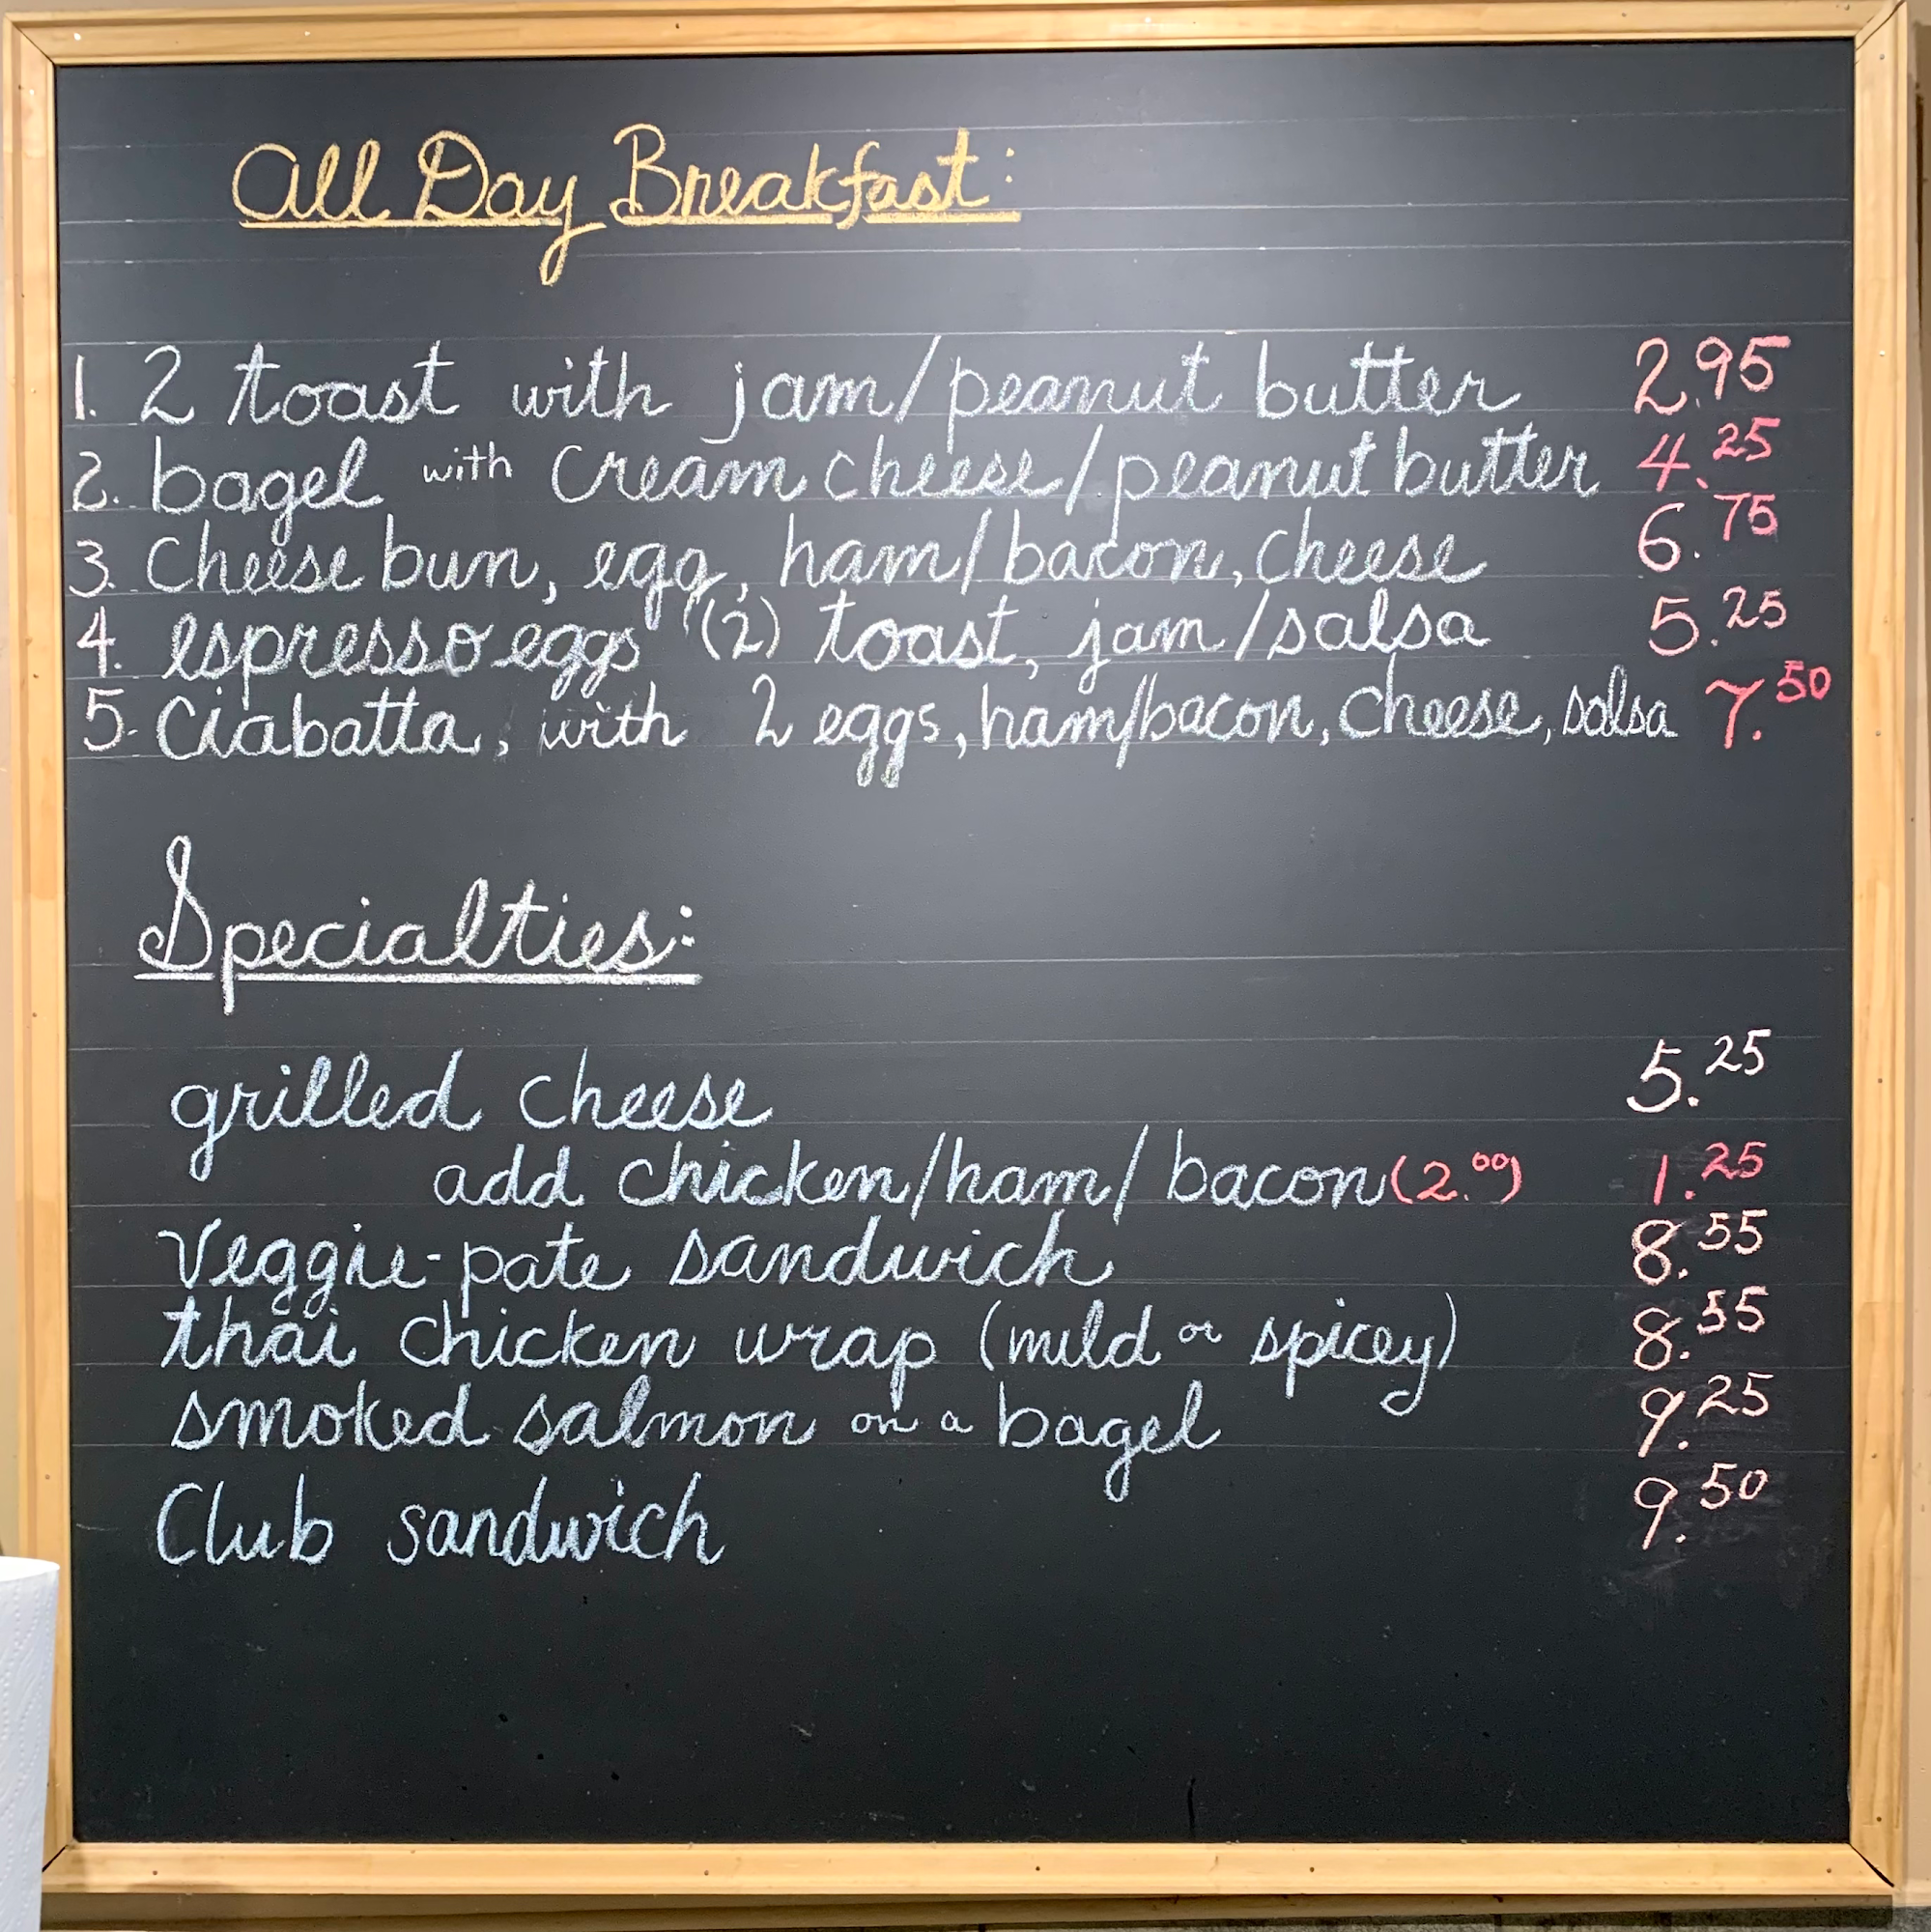 All Day Breakfast:
1. 2 toast with jam/peanut butter 2.95
2. bagel with cream cheese/peanut butter 4.25
3. Cheese bun, egg, ham/bacon, cheese 6.75
4. espresso eggs (2) toast, jam/salsa 5.25
5. Ciabatta, with 2 eggs, ham/bacon, cheese, salsa 7.50
Specialties:
grilled cheese 5.25
add chicken/ham/bacon (2.00) 1.25
Veggie-pate sandwich 8.55
thai chicken wrap (mild or spicey) 8.55
smoked salmon on a bagel 9.25
Club sandwich 9.50